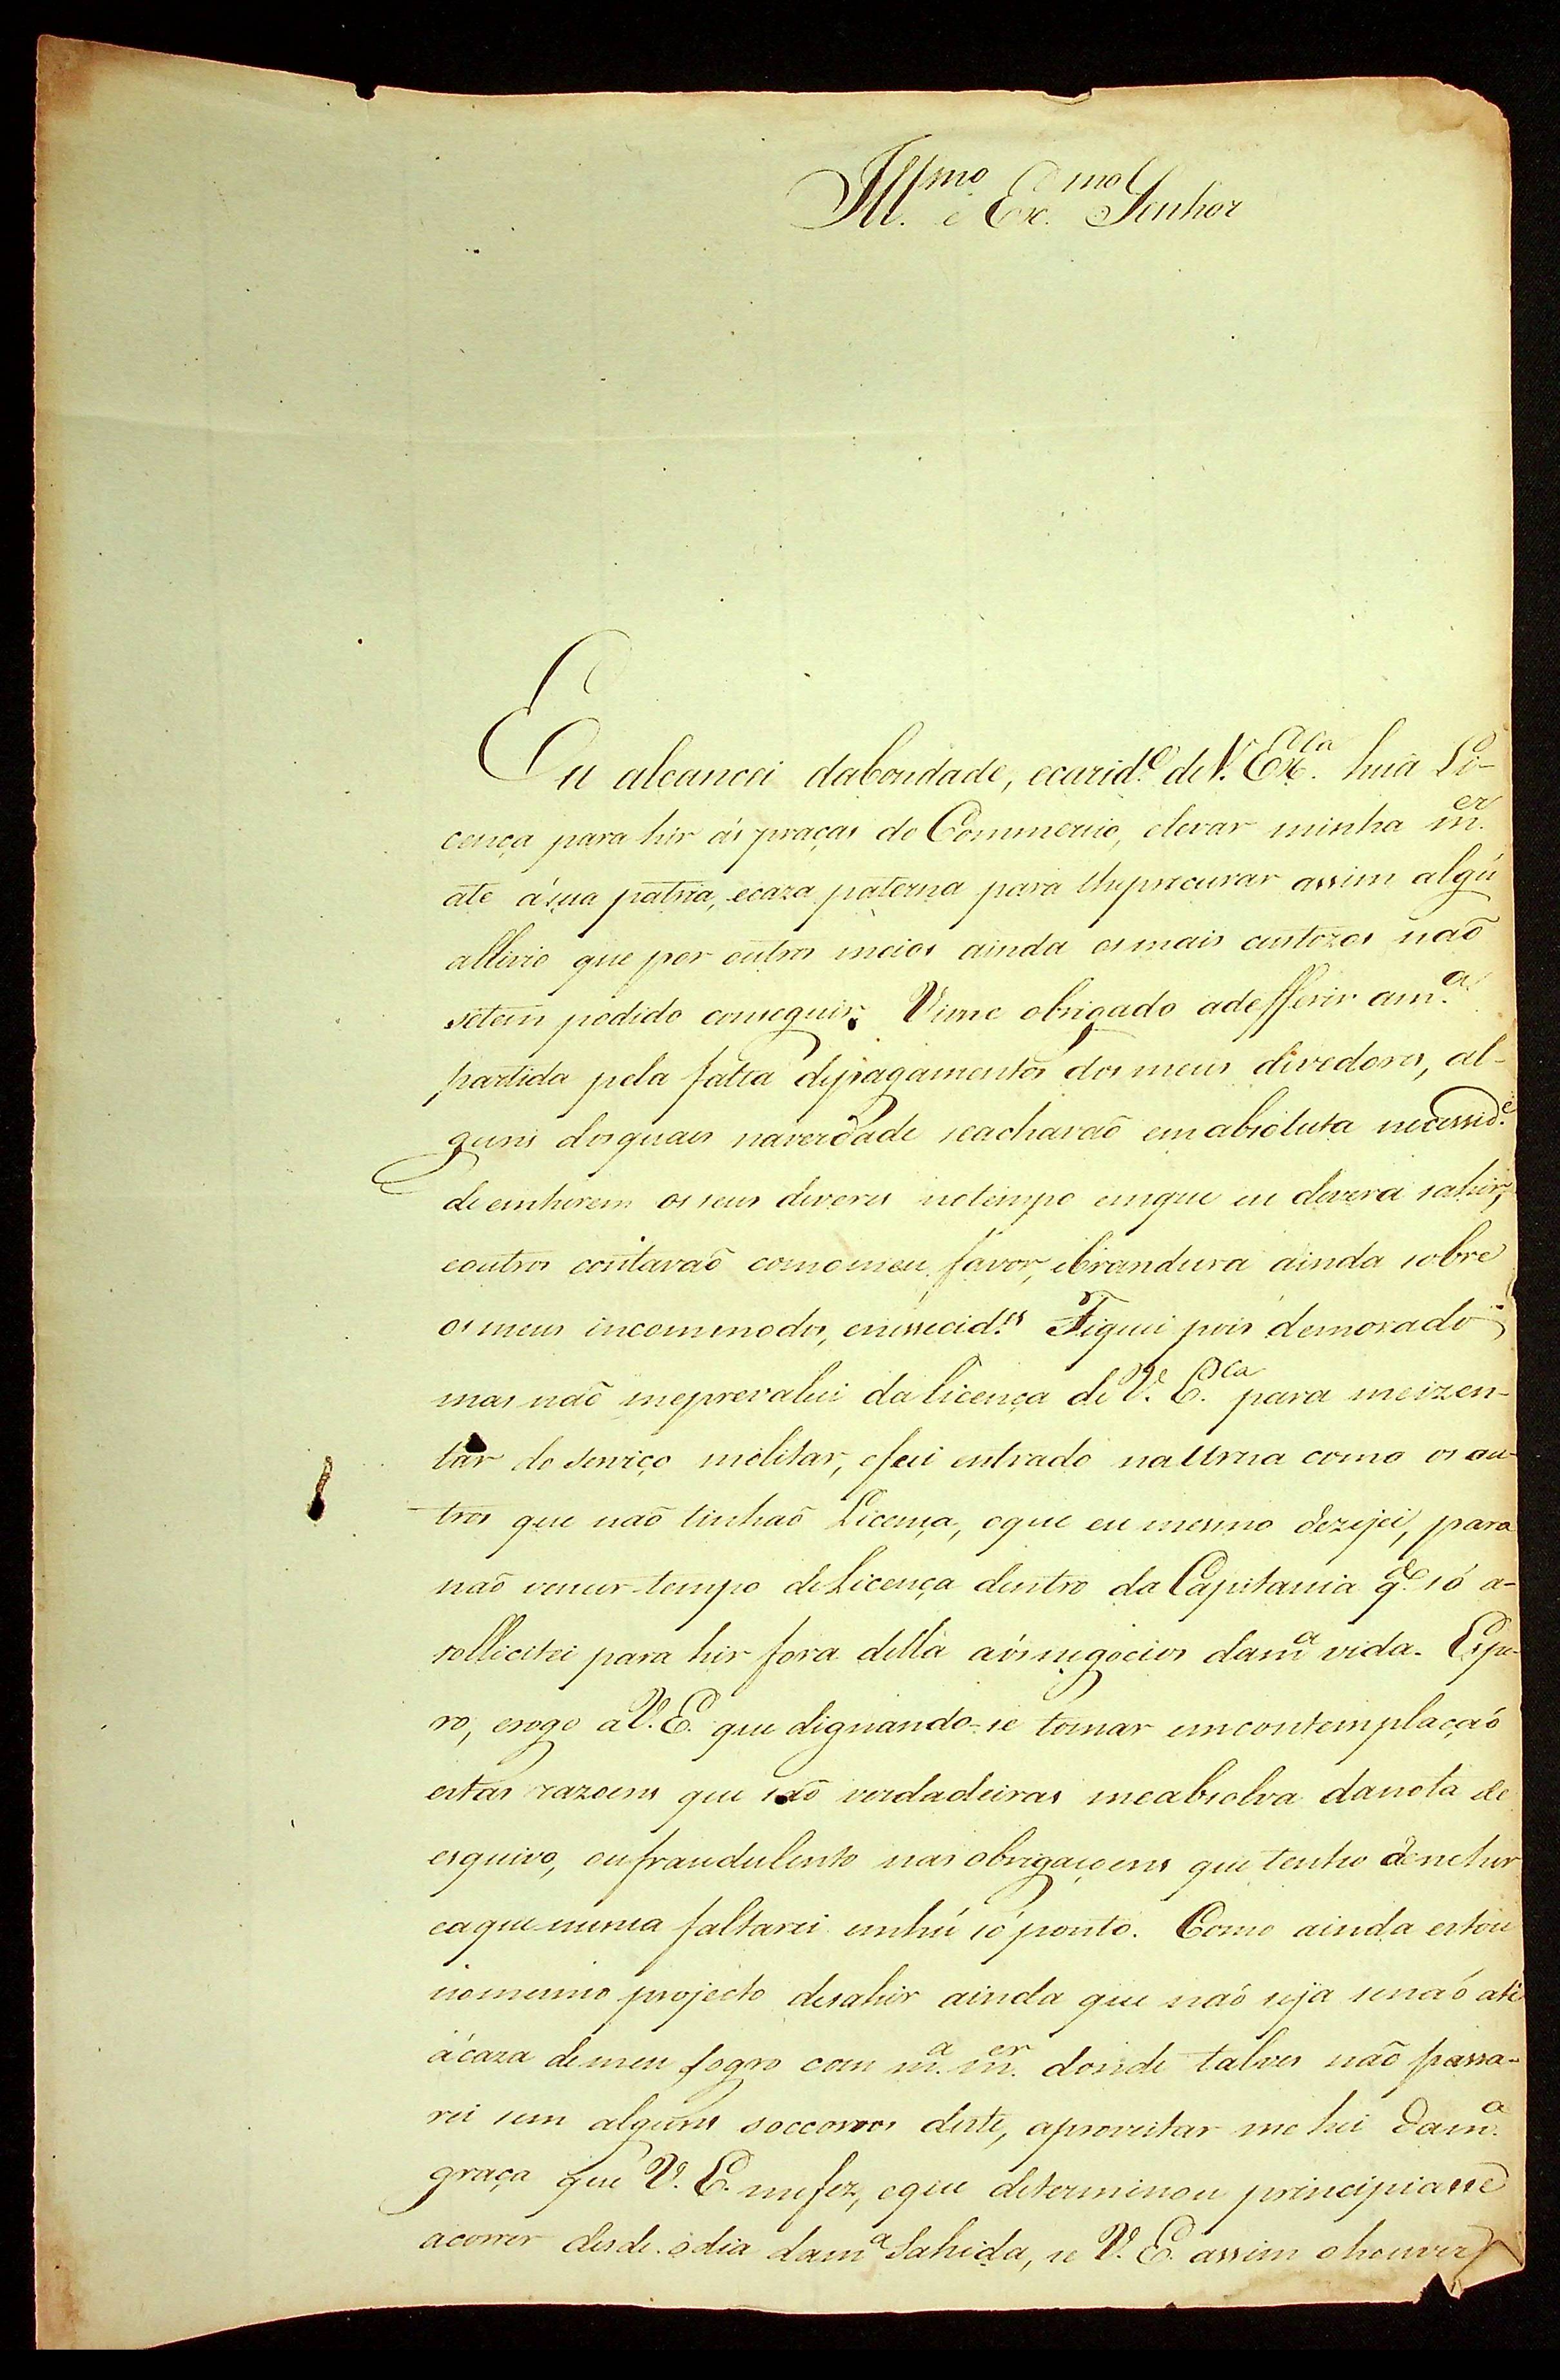 Ill.mo e Ex.mo Senhor
Eu alcancei dabondade, ecarid.e de V. Ex.cia huã Li-
cença para hir ás praças do Commercio, elevar minha m.er
ate ásua patria, ecaza paterna para lheprocurar assim algũ
allivio que por outros meios ainda osmais custozos naõ
setem podido conseguir. Vime obrigado adefferir am.a
partida pela falta depagamentos dosmeus divedores, al-
guns dosquaes naverdade seacharaõ emabsoluta necessid.e
deemherem osseus deveres notempo emque eu devera sahir,
eoutros contavaõ comomeu favor, ebrandura ainda sobre
os meus incommodos, enessecid.es Fiquei pois demorado
mas naõ meprevaleci dalicença de V. E.cia para meizen-
tar do serviço melitar, efui entrado naUrna como os ou-
tros que naõ tinhaõ Licença, oque eu mesmo dezejei, para
naõ vencer tempo deLicença dentro da Capitania q.e só a-
sollicitei para hir fora della aósnegocios dam.a vida. Espe-
ro, erogo aV. E. que dignando-se tomar emcontemplaçaõ
estas razoens que saõ verdadeiras meabsolva danota de
esquivo, oufraudulento nasobrigaçoens que tenho
eaquenunca faltarei emhũ só ponto. Como ainda estou
nomesmo projecto desahir ainda que naõ seja senaõ até
ácaza demeu sogro com m.a m.er donde talves naõ passa-
rei sem alguns soccorros deste, aproveitar me hei dam.a
graça que V. E. mefez, eque determinou principiasse
acorrer desde odia dam.a Sahida, se V. E. assim ohouver